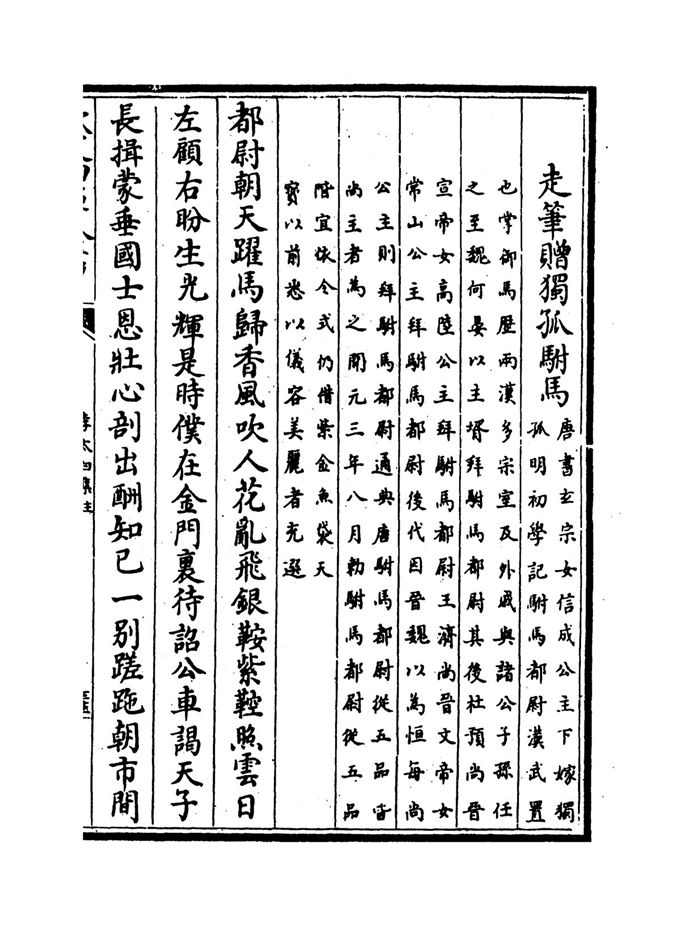 走筆贈獨孤駙馬
唐書玄宗女信成公主下嫁獨
孤明初學記駙馬都尉漢武置
也掌御馬歷兩漢多宗室及外戚與諸公子孫任
之至魏何晏以主壻拜駙馬都尉其後杜預尚晉
宣帝女高陸公主拜駙馬都尉王濟尚晉文帝女
常山公主拜駙馬都尉後代因晉魏以為恒每尚
公主則拜駙馬都尉通典唐駙馬都尉從五品皆
尚主者為之開元三年八月勅駙馬都尉從五品
階宜依令式仍借紫金魚袋天
寳以前悉以儀容美麗者充選
都尉朝天躍馬歸香風吹人花亂飛銀鞍紫鞚照雲日
左顧右盼生光輝是時僕在金門裏待詔公車謁天子
長揖蒙垂國士恩壯心剖出酬知已一别蹉跎朝市間
李太白集注